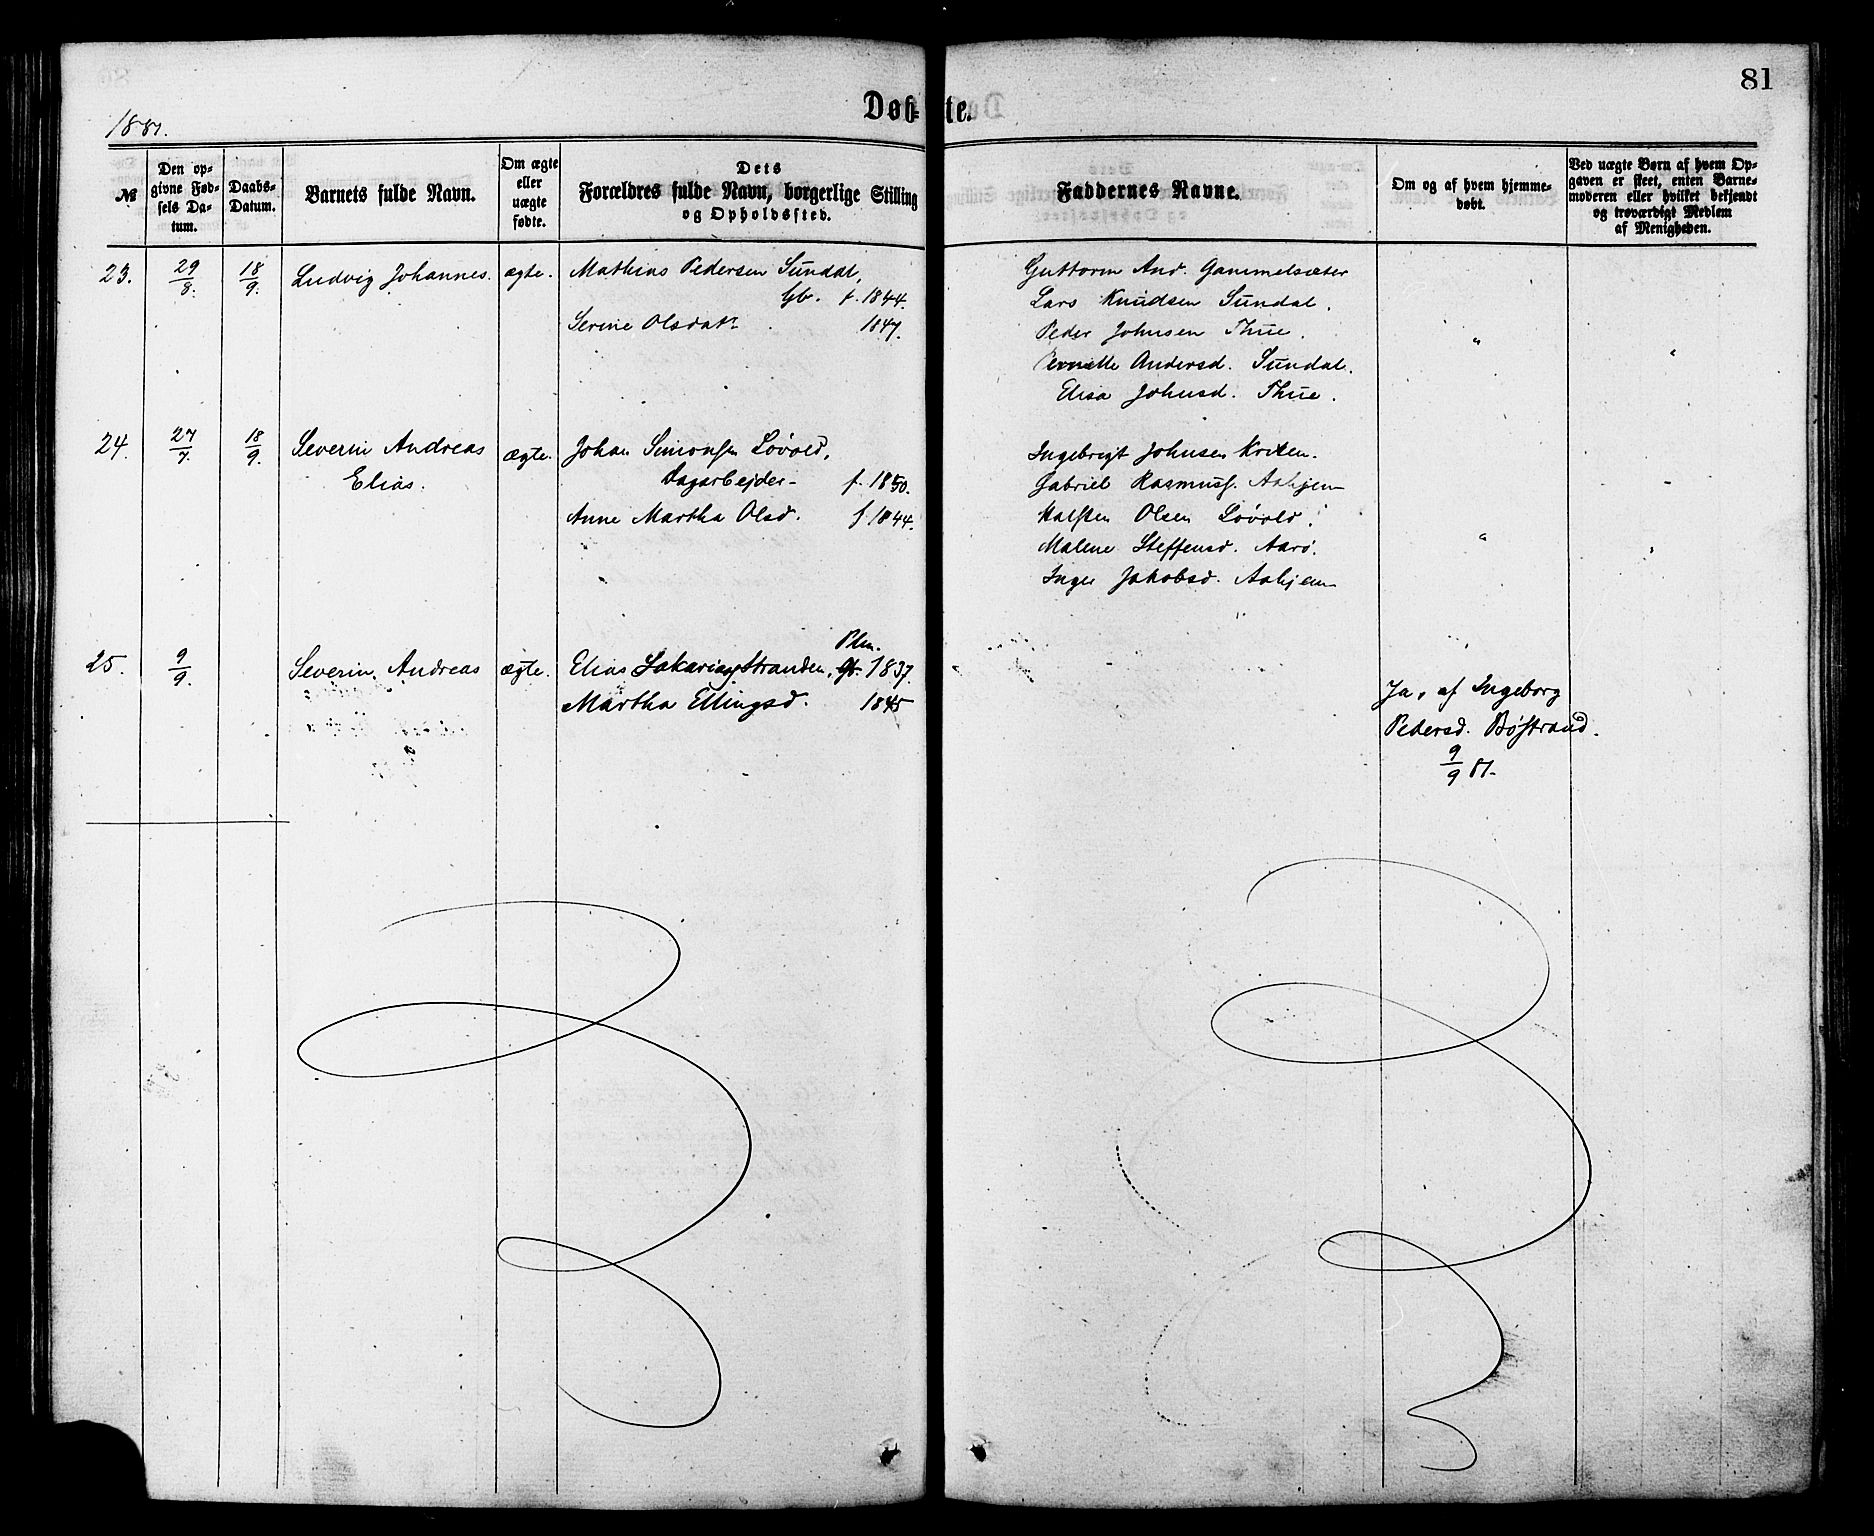 81
1881.
Døb-te.
№
Den opgivne Fødsels Datum.
Daabs-Datum.
Barnets fulde Navn.
Om ægte eller uægte fødte.
Dets Forældres fulde Navn, borgerlige Stilling og Opholdssted.
Faddernes Navne.
Om og af hvem hjemmedøbt.
Ved uægte Børn af hvem Opgaven er skeet, enten Barnemoderen eller hvilket bekjendt og troværdigt Medlem af Menigheden.
23. 29/8. 18/9. Ludvig Johannes. ægte. Mathias Pedersen Sundal,
Gb. f. 1844.
Serine Olsdatr 1847.
Guttorm And. Gammelsæter
Lars Knudsen Sundal.
Peder Johnsen Thue.
Pernille Andersd. Sundal.
Elisa Johnsd. Thue.
24. 27/7. 18/9. Severin Andreas ægte. Johan Simonsen Løvold,
Elias. Dagarbejder- f. 1850.
Anne Martha Olsd. f. 1844.
Ingebrigt Johnsen
Gabriel Rasmuss. Aahjem
Olsen Løvold.
Malene Steffensd. Aarø.
Inger Jakobsd. Aahjem
25. 9/9. Severin Andreas ægte. Elias Sakarias Stranden, Gb. Plm. 1837.
Martha Ellingsd. 1845
Ja, af Ingeborg
Pedersd. Bøstrand.
9/9 81.